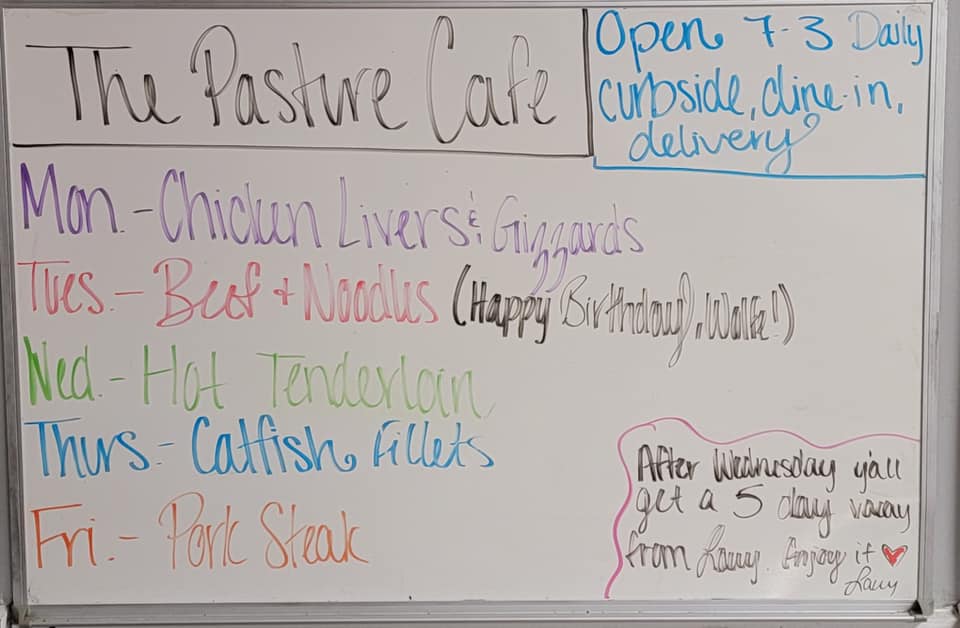 The Pasture Cafe
Open 7-3 Daily
curbside, dine-in,
delivery
Mon. - Chicken Livers & Gizzards
Tues. - Beef + Noodles (Happy Birthday, Wolfe!)
Wed. - Hot Tenderloin
Thurs - Catfish Fillets
Fri. - Pork Steak
After Wednesday y'all
get a 5 day vacay
from Lacey. Enjoy it ♥
Lacey